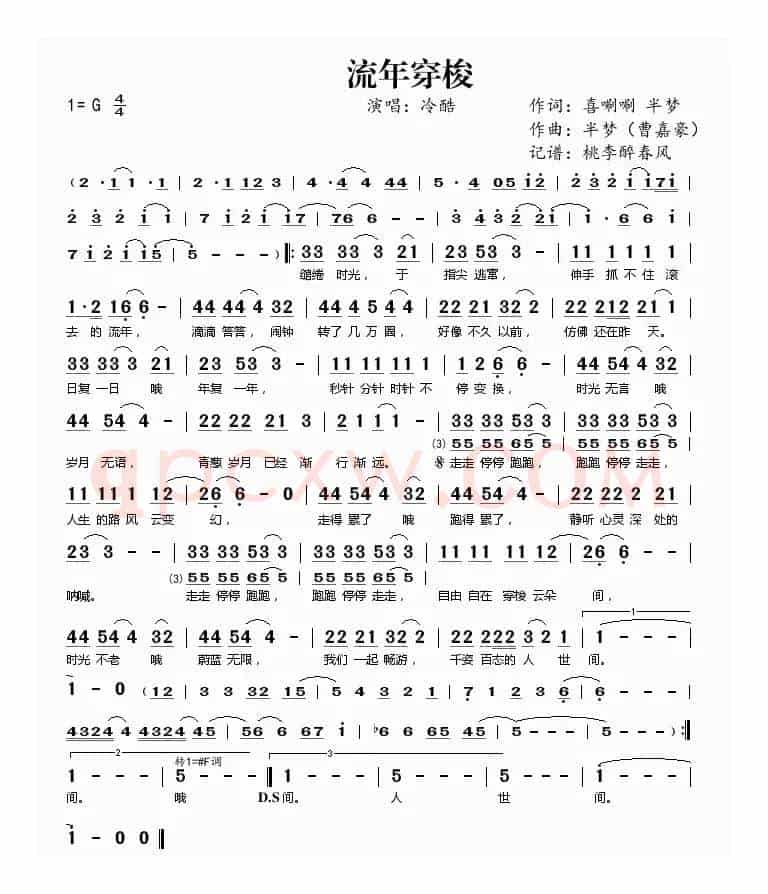 流年穿梭
1=G 4/4 演唱：冷酷 作词：喜唰唰 半梦
作曲：半梦（曹嘉豪）
记谱：桃李醉春风
(2 · 1 1 · 1 | 2 · 1 12 3 | 4 · 4 4 44 | 5 · 4 05 12 | 2 3 2 1 171 |
2 3 2 1 1 | 7 1 2 1 171 | 76 6 - - | 3 4 3 2 21 | 1 · 6 6 1 |
7 1 2 1 15 | 5 - - - ) ‖: 33 33 3 21 | 23 53 3 - | 11 11 1 1 |
缱绻 时光， 于 指尖 逃窜， 伸手 抓 不 住 滚
1·2 16 6 - | 44 44 4 32 | 44 4 5 44 4 | 22 21 32 2 | 22 212 21 1 |
去 的 流年， 滴滴 答答，闹钟 转了 几 万 圈， 好像 不久 以前， 仿佛 还在昨 天。
33 33 3 21 | 23 53 3 - | 11 11 11 1 | 12 6 6 - | 44 54 4 32 |
日复 一日 哦 年复 一年， 秒针 分针 时针 不 停 变 换， 时光 无言 哦
44 54 4 - | 22 22 21 3 | 2 1 1 1 - | 33 33 53 3 | 33 33 53 3 |
(3) 55 55 65 5 | 55 55 65 5 |
岁月 无语， 青葱 岁月 已经 渐 行 渐 远。 走走 停停 跑跑， 跑跑 停停 走走，
11 11 1 12 | 26 6 - 0 | 44 54 4 32 | 44 54 4 - | 22 22 2 21 |
人生 的路 风 云变 幻， 走得 累了 哦 跑得 累了， 静听 心灵 深 处的
23 3 - - | 33 33 53 3 | 33 33 53 3 | 11 11 11 12 | 26 6 - - |
(3) 55 55 65 5 | 55 55 65 5 |
呐喊。 走走 停停 跑跑， 跑跑 停停 走走， 自由 自在 穿梭 云朵 间，
1
44 54 4 32 | 44 54 4 - | 22 21 32 2 | 22 222 3 2 1 | 1 - - - |
时光 不老 哦 蔚蓝 无限， 我们 一起 畅游， 千姿 百态的 人 世 间。
1 - 0 (12 | 3 3 32 15 | 5 4 3 2 1 | 7 1 2 3 6 | 6 - - 56 |
4324 4 4324 45 | 56 6 67 1 | ♭6 6 65 45 | 5 - - - | 5 - - - ) :‖
2 转1=#F调 3
1 - - - | 5 - - - ‖ 1 - - - | 5 - - - | 5 - - - | 1 - - - |
间。 哦 D.S间。 人 世 间。
1 - 0 0 ‖
qpcxw.COM